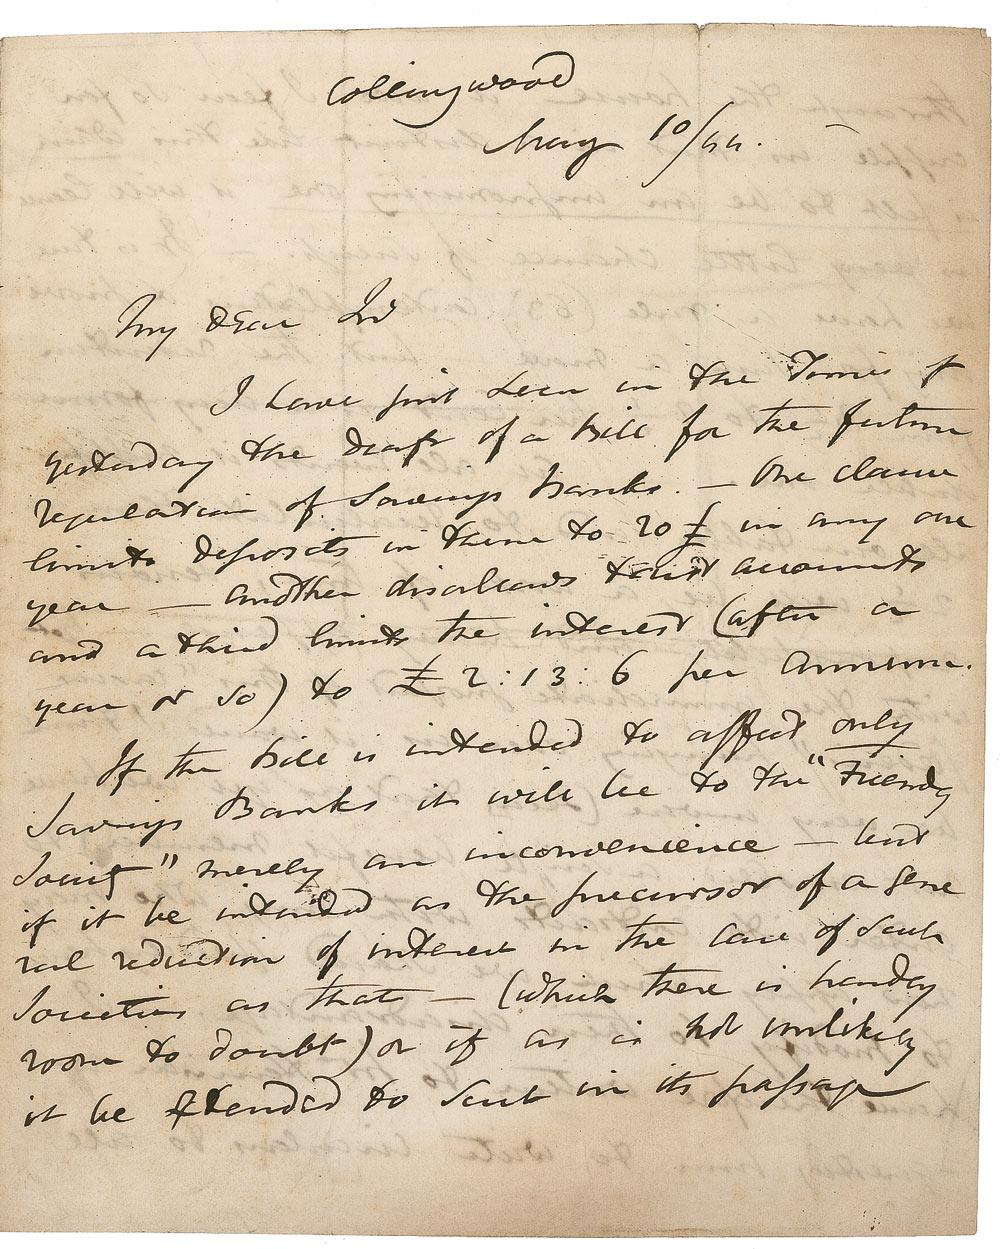 Collingwood
May 10/44.
My Dear Sir
I have just seen in the Times of
yesterday the draft of a Bill for the future
regulation of Savings Banks. — One clause
limits deposits in them to 20£ in any one
year — another disallows trust accounts
and a third limits the interest (after a
year or so) to £2:13:6 per Annum.
If the Bill is intended to affect only
Savings Banks it will be to the "Friendly
Society" merely an inconvenience — but
if it be intended as the precursor of a gene
ral reduction of interest in the case of such
Societies as that — (which there is hardly
room to doubt) or if as is not unlikely
it be extended to such in its passage